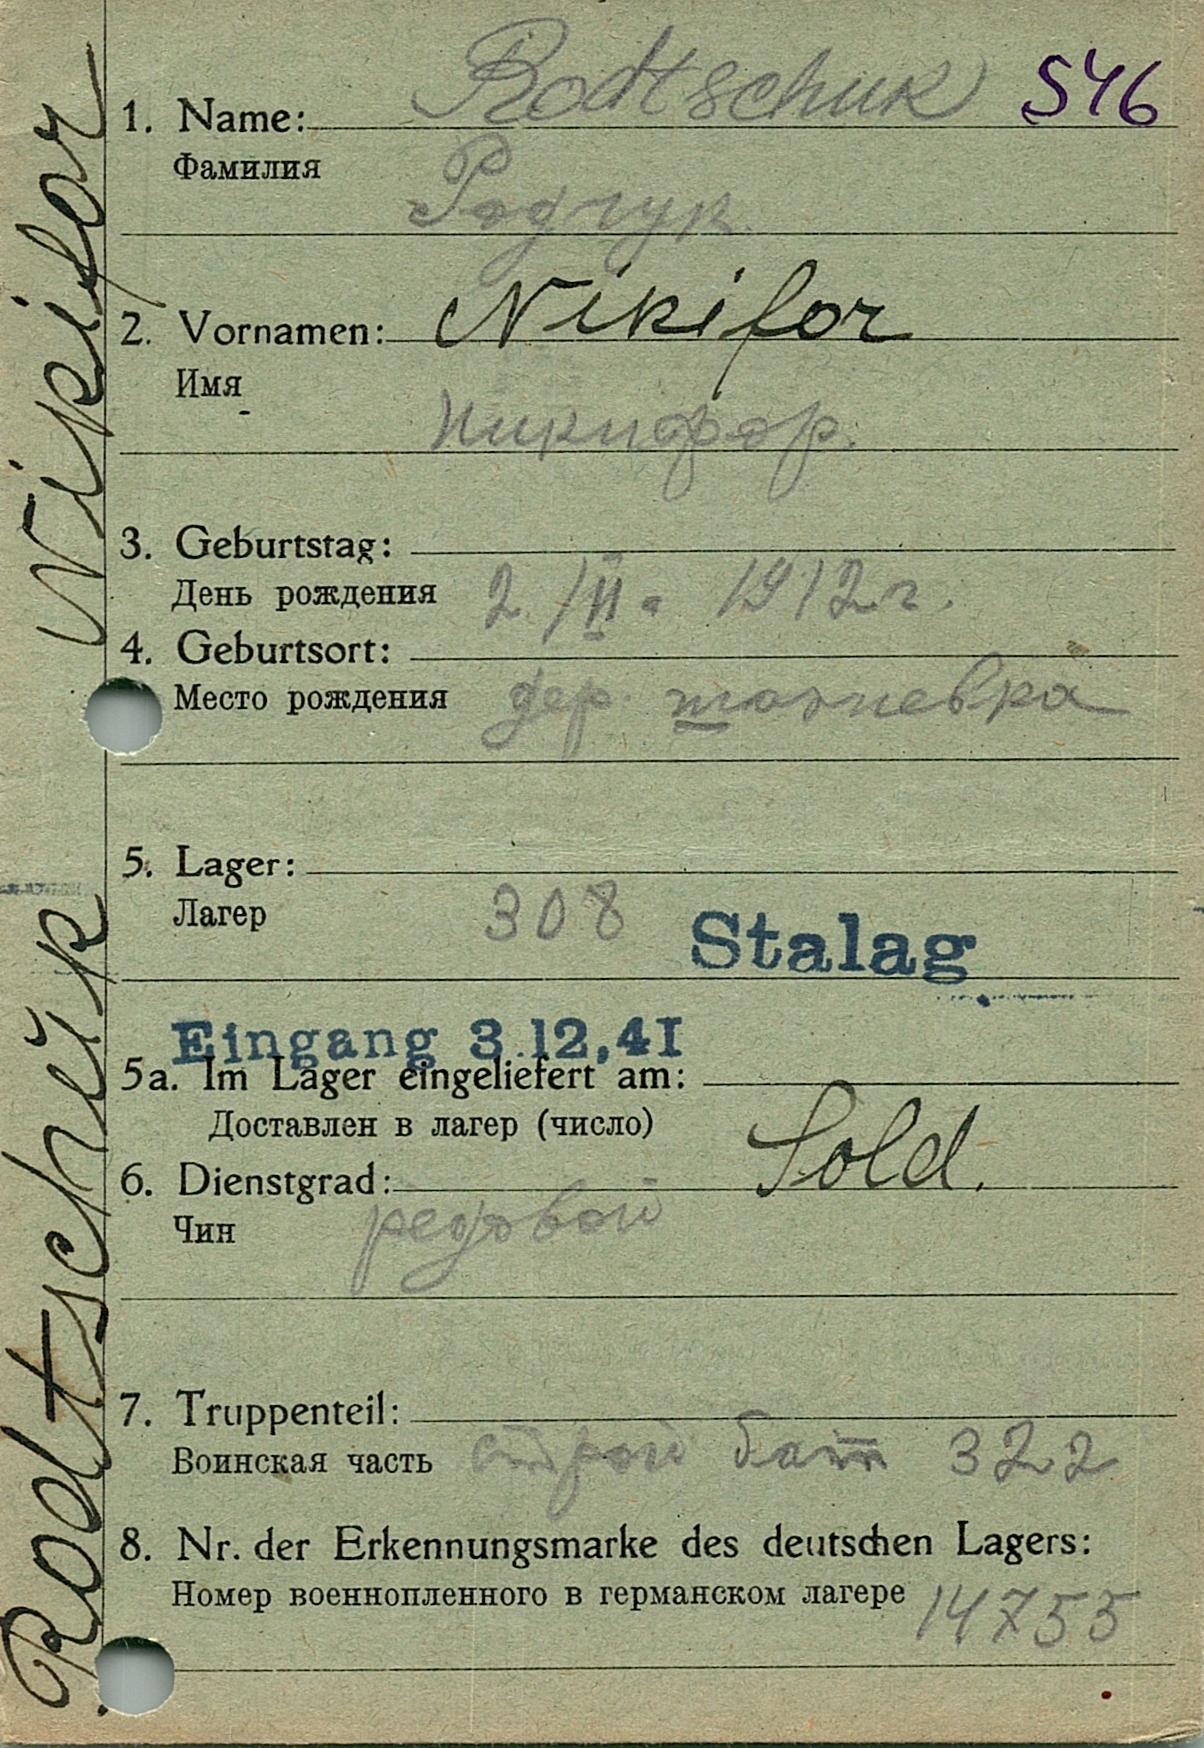 Rodtschuk 546
1. Name:
Фамилия
Родчук.
2. Vornamen: Nikifor
Имя
Никифор.
3. Geburtstag:
День рождения 2/II. 1912 г.
4. Geburtsort:
Место рождения дер.
5. Lager:
Лагер 308 Stalag
Eingang 3.12,41
5a. Im Lager eingeliefert am:
Доставлен в лагер (число)
6. Dienstgrad: Sold.
Чин редовой
7. Truppenteil:
Воинская часть строй бат 322
8. Nr. der Erkennungsmarke des deutschen Lagers:
Номер военнопленного в германском лагере 14755
Rodtschŭk Nikifor